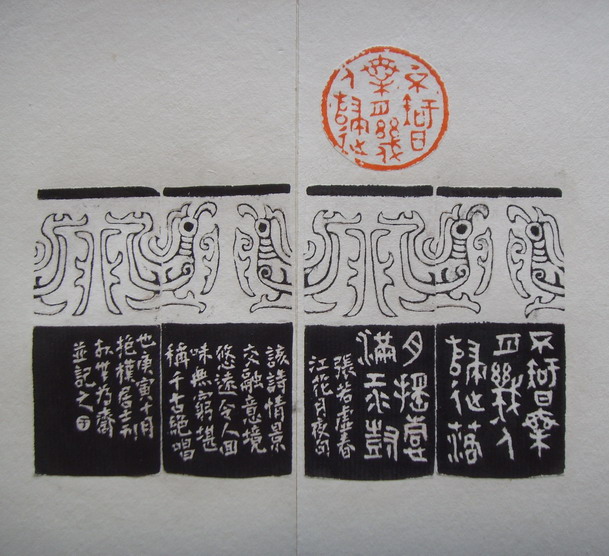 不知
乘月幾
人歸
不知乘
月幾人
歸落
月搖情
滿江樹
張若虛春
江花月夜句
該詩情景
交融意境
悠遠令人回
味無窮堪
稱千古絕唱
也庚寅十月
抱樸居士刊
於無為齋
並記之